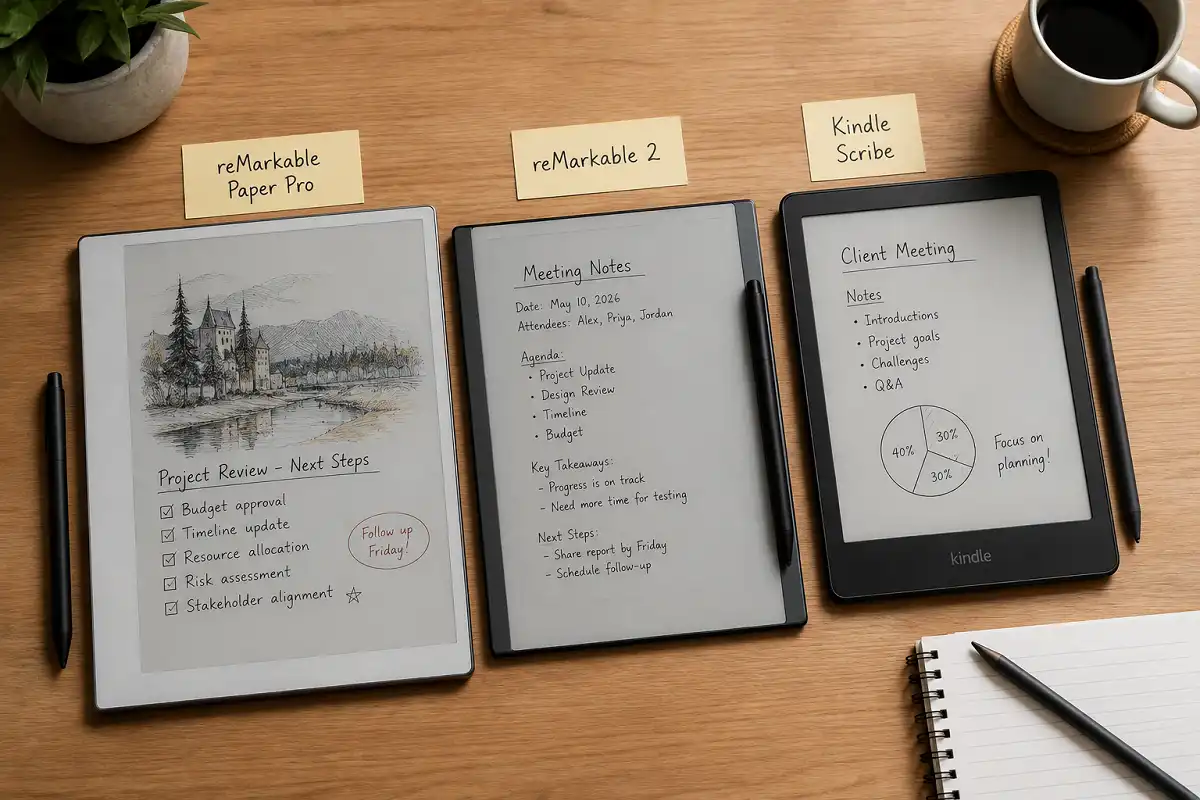 reMarkable
Paper Pro
reMarkable 2
Kindle
Scribe
Project Review – Next Steps
Budget approval
Timeline update
Resource allocation
Risk assessment
Stakeholder alignment ☆
Follow up
Friday!
Meeting Notes
Date: May 10, 2026
Attendees: Alex, Priya, Jordan
Agenda:
• Project Update
• Design Review
• Timeline
• Budget
Key Takeaways:
– Progress is on track
– Need more time for testing
Next Steps:
– Share report by Friday
– Schedule follow-up
Client Meeting
Notes
• Introductions
• Project goals
• Challenges
• Q&A
40%
30%
30%
Focus on
planning!
kindle